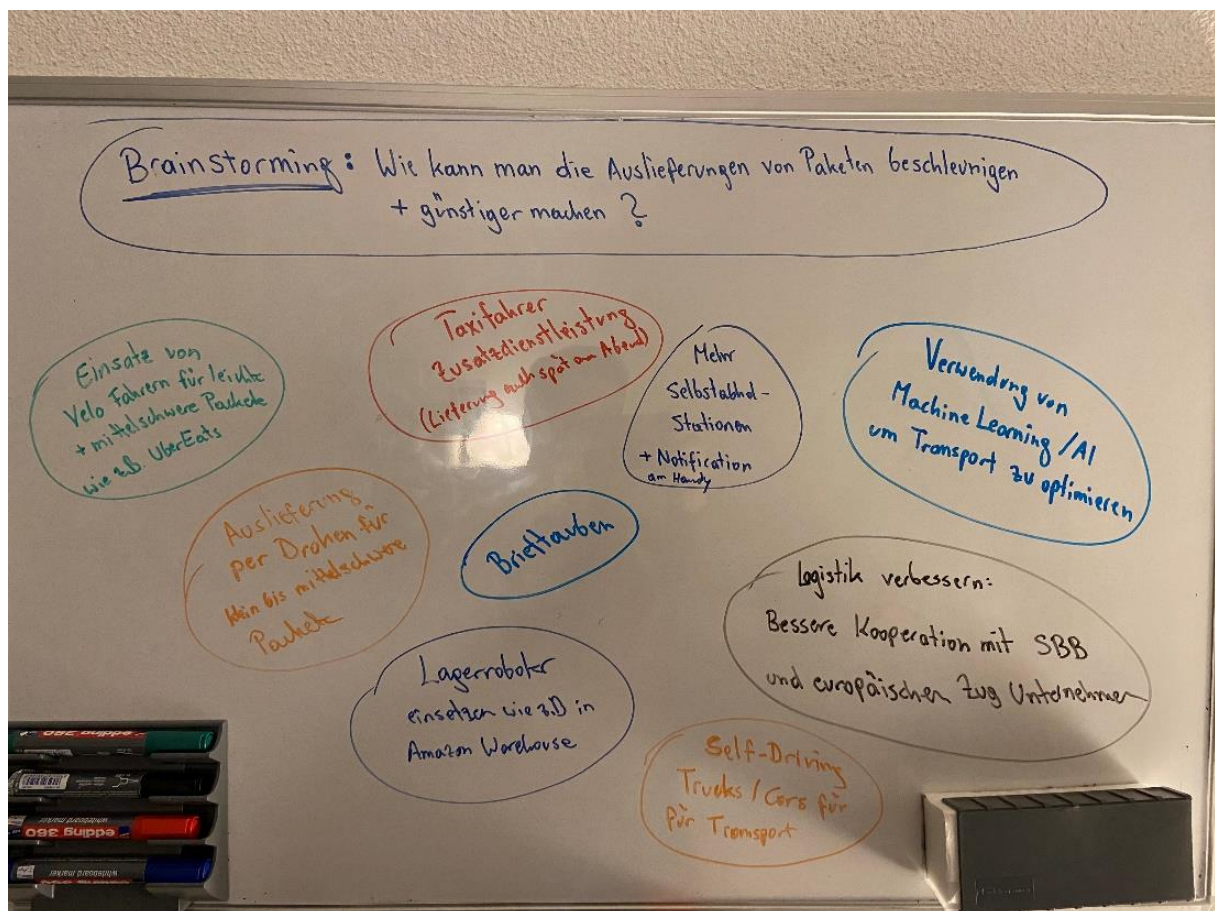 Brainstorming: Wie kann man die Auslieferungen von Paketen beschleunigen
+ günstiger machen ?
Einsatz von
Velo Fahrern für leichte
+ mittelschwere Packete
wie z.B. UberEats
Taxifahrer
Zusatzdienstleistung
(Lieferung auch spät am Abend)
Mehr
Selbstabhol-
Stationen
+ Notification
am Handy
Verwendung von
Machine Learning / AI
um Transport zu optimieren
Auslieferung
per Drohen für
klein bis mittelschwere
Packete
Brieftauben
Logistik verbessern:
Bessere Kooperation mit SBB
und europäischen Zug Unternehmen
Lagerroboter
einsetzen wie z.B in
Amazon Warehouse
Self-Driving
Trucks / Cars für
für Transport
edding 360
whiteboard marker
edding 360
whiteboard marker
whiteboard marker